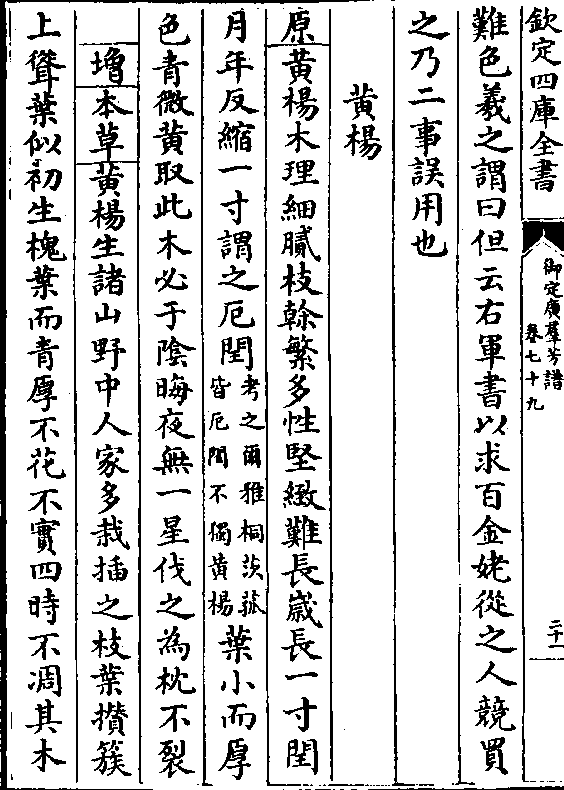 欽定四庫全書
御定廣羣芳譜
卷七十九
二十一
難色羲之謂曰但云右軍書以求百金姥從之人競買
之乃二事誤用也
黄楊
原黄楊木理細膩枝榦繁多性堅緻難長嵗長一寸閏
月年反縮一寸謂之厄閏考之爾雅桐茨菰
皆厄閏不獨黄楊葉小而厚
色青微黄取此木必于陰晦夜無一星伐之為枕不裂
增本草黄楊生諸山野中人家多栽插之枝葉攅簇
上聳葉似初生槐葉而青厚不花不實四時不凋其木